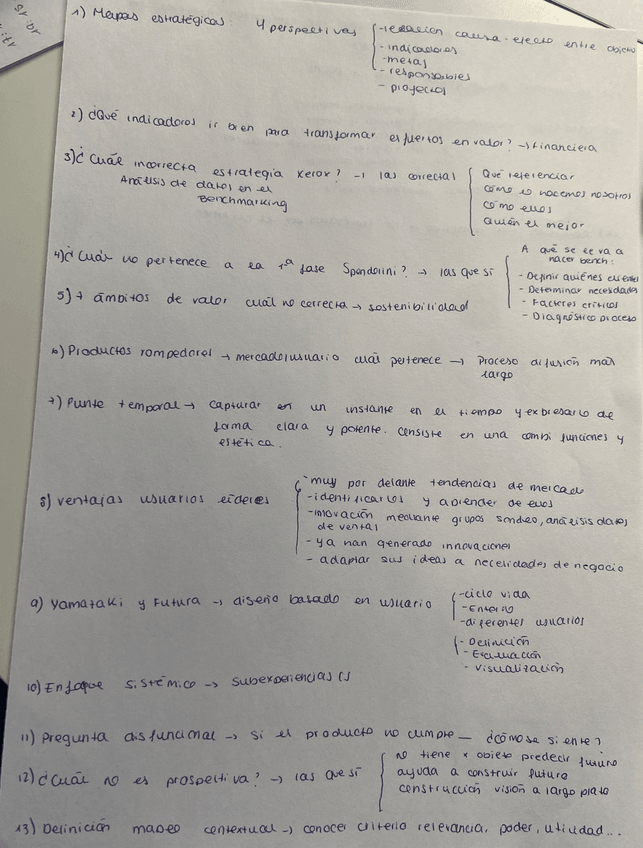 1) Mapas estratégicos: 4 perspectivas - relación causa-efecto entre objetiv
- indicadores
- metas
- responsables
- proyectos
2) ¿Qué indicadores ir bien para transformar esfuertos en valor? → Financiera
3) ¿Cuál incorrecta estrategia xerox? → las correctas
Análisis de datos en el
Benchmarking
Qué referenciar
cómo lo hacemos nosotros
cómo ellos
quién el mejor
4) ¿Cuál no pertenece a la 1ª fase Spendolini? → las que sí
A qué se le va a
hacer bench:
- Definir quiénes clientes
- Determinar necesidades
- Factores críticos
- Diagnóstico proceso
5) 7 ámbitos de valor cuál no correcta → sostenibilidad
6) Productos rompedores → mercado/usuario cuál pertenece → Proceso difusión más
largo
7) Punte temporal → capturar en un instante en el tiempo y expresarlo de
forma clara y potente. Consiste en una combi funciones y
estética.
8) ventajas usuarios líderes
- muy por delante tendencias de mercado
- identificarlos y aprender de ellos
- innovación mediante grupos sondeo, análisis datos
de ventas
- ya han generado innovaciones
- adaptar sus ideas a necesidades de negocio
9) Yamazaki y Futura → diseño basado en usuario
- ciclo vida
- Entorno
- diferentes usuarios
- Definición
- Evaluación
- visualización
10) Enfoque sistémico → subexperiencias
11) Pregunta disfuncional → si el producto no cumple — ¿cómo se siente?
12) ¿cuál no es prospectiva? → las que sí
no tiene x objeto predecir futuro
ayuda a construir futuro
construcción visión a largo plazo
13) Definición mapeo contextual → conocer criterio relevancia, poder, utilidad...